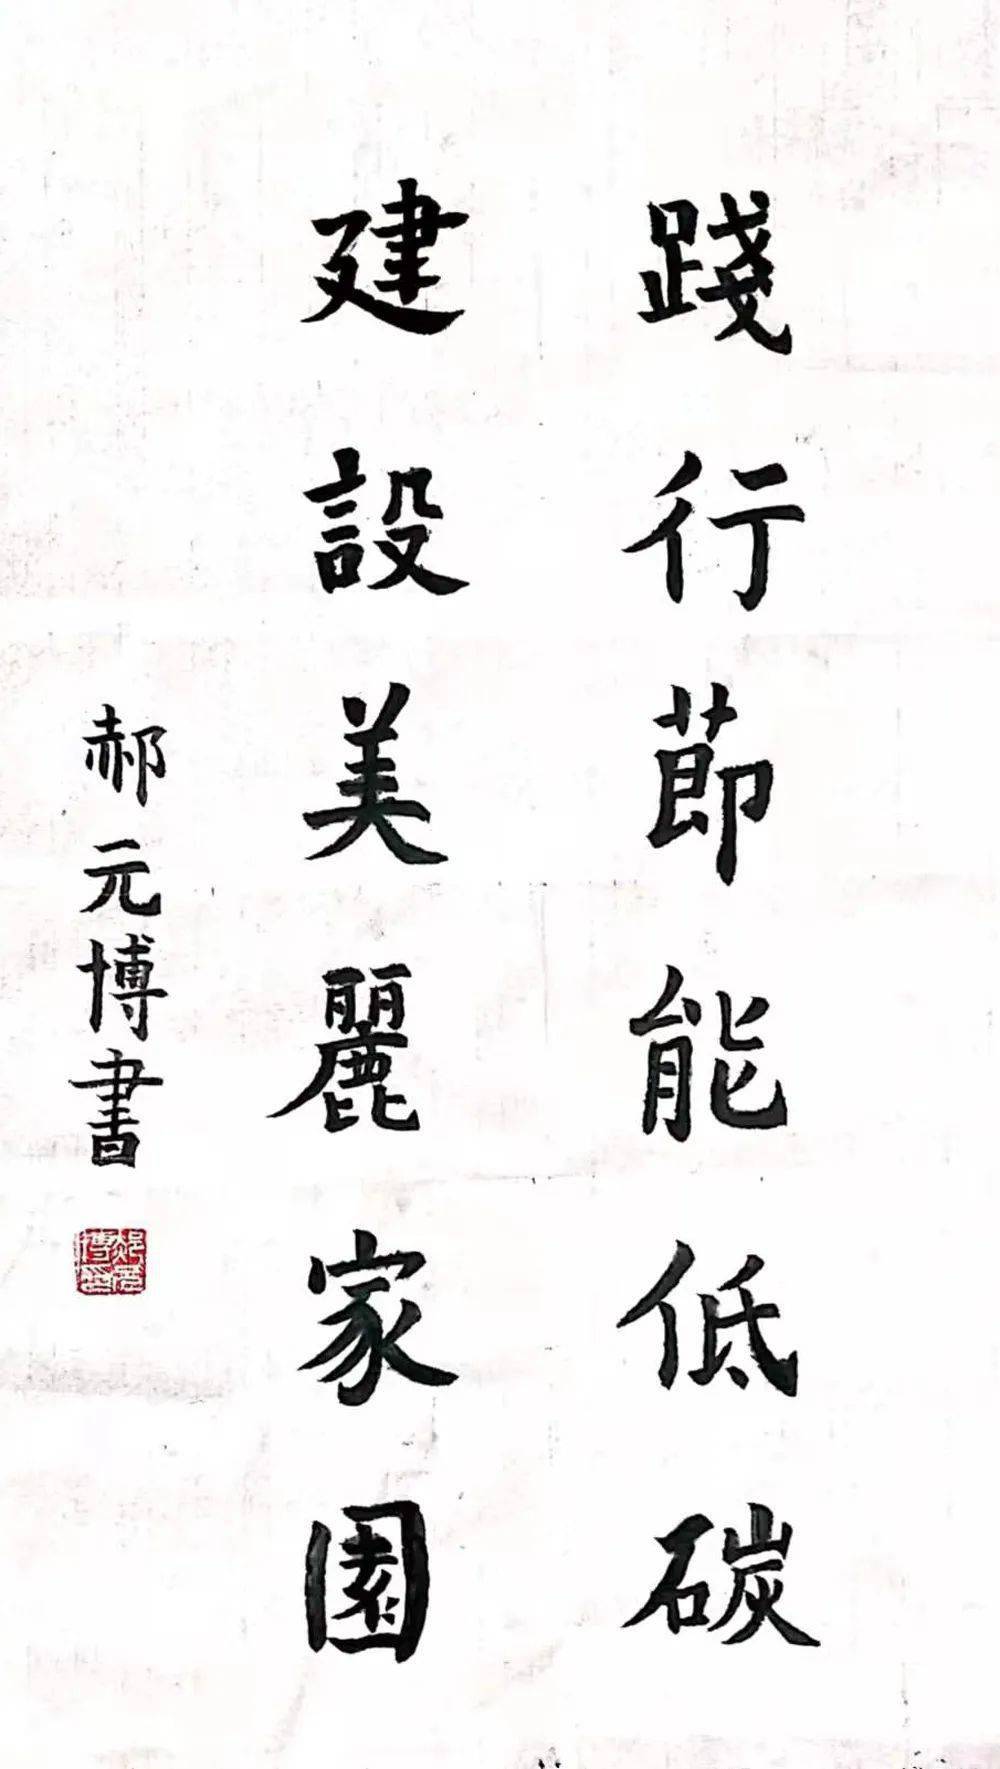 踐行節能低碳
建設美麗家園
郝元博書